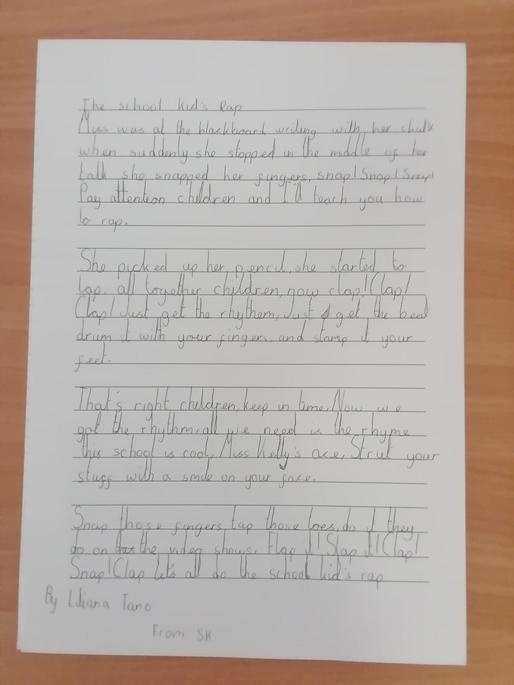 The school kid's Rap
Miss was at the blackboard writing with her chalk
when suddenly she stopped in the middle of her
talk she snapped her fingers, snap! Snap! Snap!
Pay attention children and I'll teach you how
to rap.
She picked up her pencil, she started to
tap. all together children, now clap! Clap!
Clap! Just get the rhythem, Just get the beat
drum it with your fingers, and stamp it your
feet.
That's right children, keep in time, Now we
got the rhythm. all we need is the rhyme
this school is cool, Miss Kelly's ace, Strut your
stuff with a smile on your face.
Snap those fingers, tap those toes, do it they
do on the video shows. Flap it! Slap it! Clap!
Snap! Clap let's all do the school kid's rap
By Liliana Tano
From SK